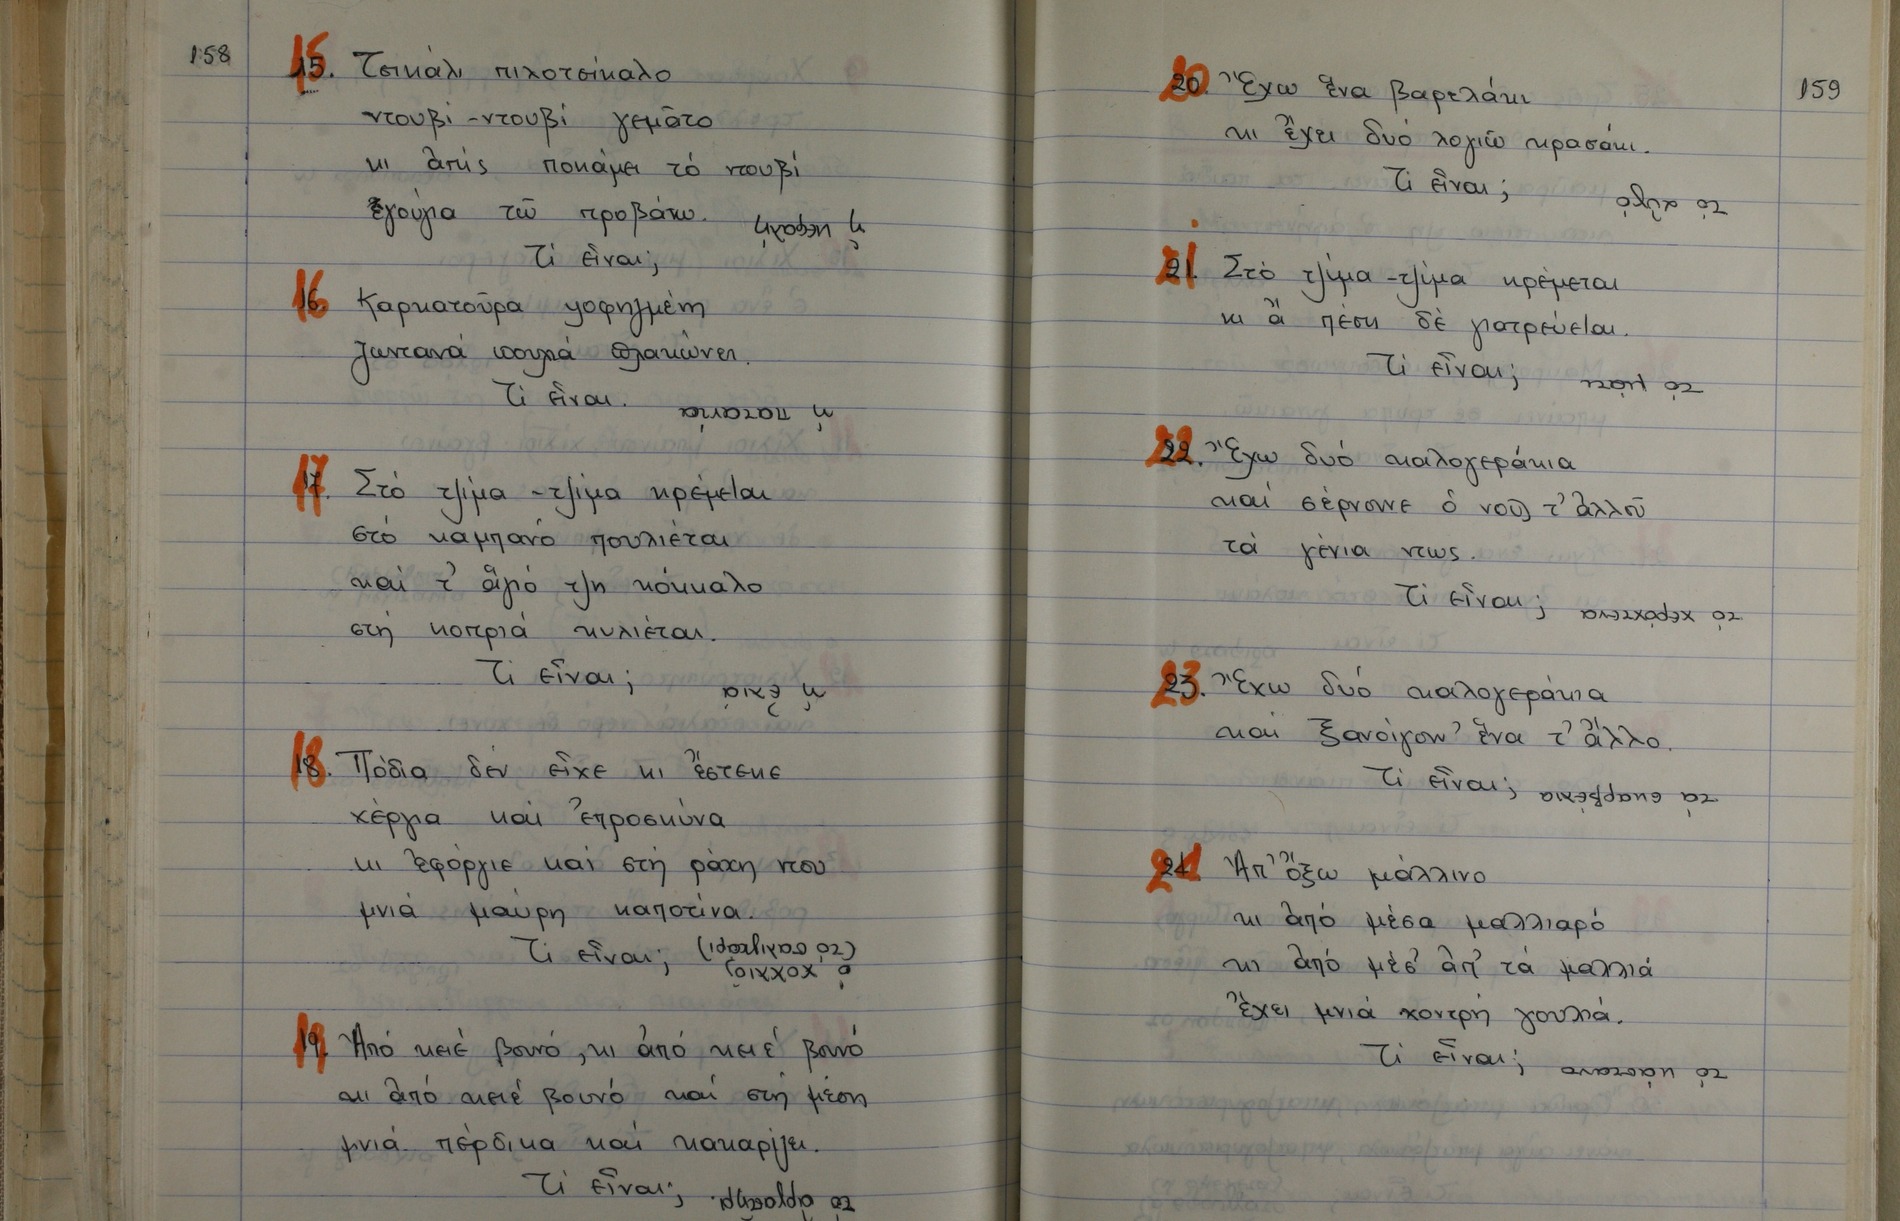 158
15. Τσικάλι πιλοτσίκαλο
ντουβί-ντουβί γεμᾶτο
κι ἀπής ποκάμει τό ντουβί
ἐγούγια τῶ προβάτω.
ἡ κεφαλή
Τί εἶναι;
16. Καρκατοῦρα ψοφησμένη
ζωντανά πουλιά πλακώνει.
Τί εἶναι.
ἡ πατανία
17. Στό τζίμα-τζίμα κρέμεται
στό καμπανό πουλιέται
καί τ' ἁγιό τζη κόκκαλο
στή κοπριά κυλιέται.
Τί εἶναι;
ἡ ἐλιά
18. Πόδια δέν εἶχε κι ἔστεκε
χέργια καί 'επροσκύνα
κι ἐφόργιε καί στή ράχη ντου
μνιά μαύρη καποτίνα.
Τί εἶναι;
(τό σαλιγκάρι)
ὁ χοχλιός
19. Ἀπό κειέ βουνό, κι ἀπό κειέ βουνό
κι ἀπό κειέ βουνό καί στή μέση
μνιά πέρδικα καί κακαρίζει.
Τί εἶναι;
159
20. Ἔχω ἕνα βαρελάκι
κι ἔχει δυό λογιῶ κρασάκι.
Τί εἶναι;
τό αὐγό
21. Στό τζίμα-τζίμα κρέμεται
κι ἄ πέσῃ δέ γιατρεύεται.
Τί εἶναι;
22. Ἔχω δυό καλογεράκια
καί σέρνουνε ὁ νούς τ' ἀλλοῦ
τά γένια ντως.
Τί εἶναι;
τά χερόχτενα
23. Ἔχω δυό καλογεράκια
καί ξανοίγουν' ἕνα τ' ἄλλο.
Τί εἶναι;
τά σκαρβέλια
24. Ἀπ' ὄξω μάλλινο
κι ἀπό μέσα μαλλιαρό
κι ἀπό μέσ' ἀπ' τά μαλλιά
ἔχει μνιά χοντρή γουλιά.
Τί εἶναι;
τό κάστανο